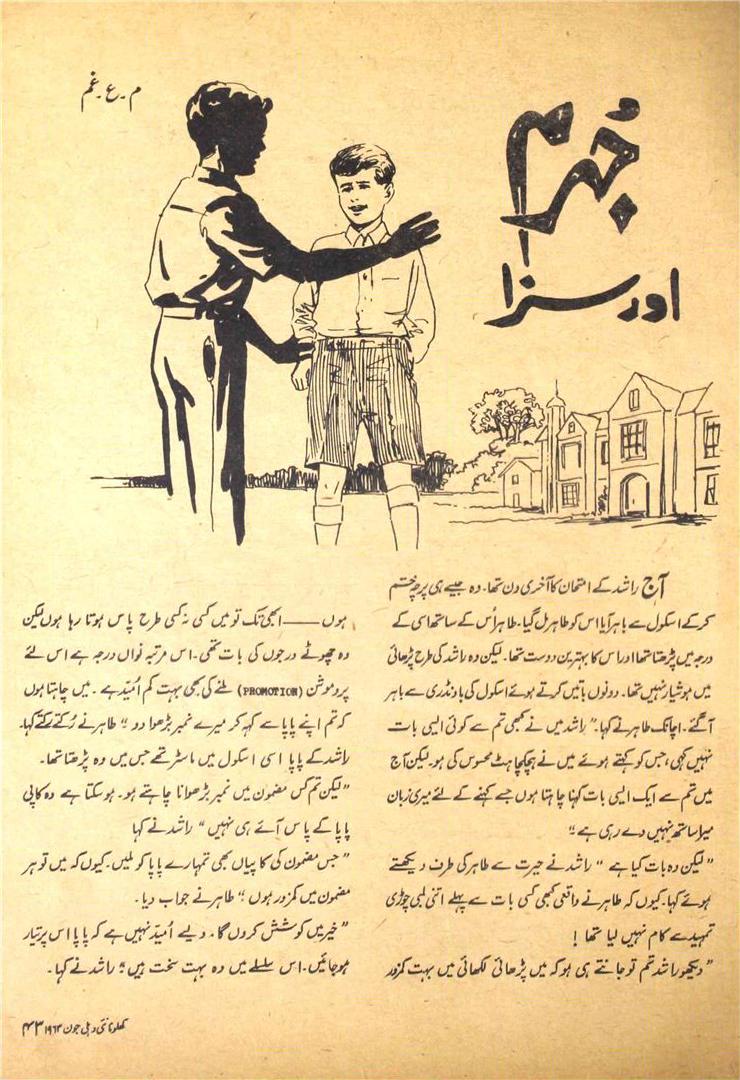 جُرم
اور سزا
م۔ع۔غم
آج راشد کے امتحان کا آخری دن تھا۔ وہ جیسے ہی پرچہ ختم
کرکے اسکول سے باہر آیا اس کو طاہر مل گیا۔ طاہر اُس کے ساتھ اسی کے
درجہ میں پڑھتا تھا اور اس کا بہترین دوست تھا۔ لیکن وہ راشد کی طرح پڑھائی
میں ہوشیار نہیں تھا۔ دونوں باتیں کرتے ہوئے اسکول کی باؤنڈری سے باہر
آگئے۔ اچانک طاہر نے کہا۔ ”راشد میں نے کبھی تم سے کوئی ایسی بات
نہیں کہی، جس کو کہتے ہوئے میں نے ہچکچاہٹ محسوس کی ہو۔ لیکن آج
میں تم سے ایک ایسی بات کہنا چاہتا ہوں جسے کہنے کے لئے میری زبان
میرا ساتھ نہیں دے رہی ہے۔“
”لیکن وہ بات کیا ہے“ راشد نے حیرت سے طاہر کی طرف دیکھتے
ہوئے کہا۔ کیوں کہ طاہر نے واقعی کبھی کسی بات سے پہلے اتنی لمبی چوڑی
تمہید سے کام نہیں لیا تھا!
”دیکھو راشد تم تو جانتے ہی ہو کہ میں پڑھائی لکھائی میں بہت کمزور
ہوں —— ابھی تک تو میں کسی نہ کسی طرح پاس ہوتا رہا ہوں لیکن
وہ چھوٹے درجوں کی بات تھی۔ اس مرتبہ نواں درجہ ہے اس لئے
پروموشن (PROMOTION) ملنے کی بھی بہت کم اُمید ہے۔ میں چاہتا ہوں
کہ تم اپنے پاپا سے کہہ کر میرے نمبر بڑھوا دو“ طاہر نے رُکتے رُکتے کہا۔
راشد کے پاپا اسی اسکول میں ماسٹر تھے جس میں وہ پڑھتا تھا۔
”لیکن تم کس مضمون میں نمبر بڑھوانا چاہتے ہو۔ ہوسکتا ہے وہ کاپی
پاپا کے پاس آئے ہی نہیں“ راشد نے کہا
”جس مضمون کی کاپیاں بھی تمہارے پاپا کو ملیں۔ کیوں کہ میں تو ہر
مضمون میں کمزور ہوں“ طاہر نے جواب دیا۔
”خیر میں کوشش کروں گا۔ ویسے اُمید نہیں ہے کہ پاپا اس پر تیار
ہوجائیں۔ اس سلسلے میں وہ بہت سخت ہیں“ راشد نے کہا۔
کھلونا نئی دہلی جون ۱۹۶۴ ۴۳